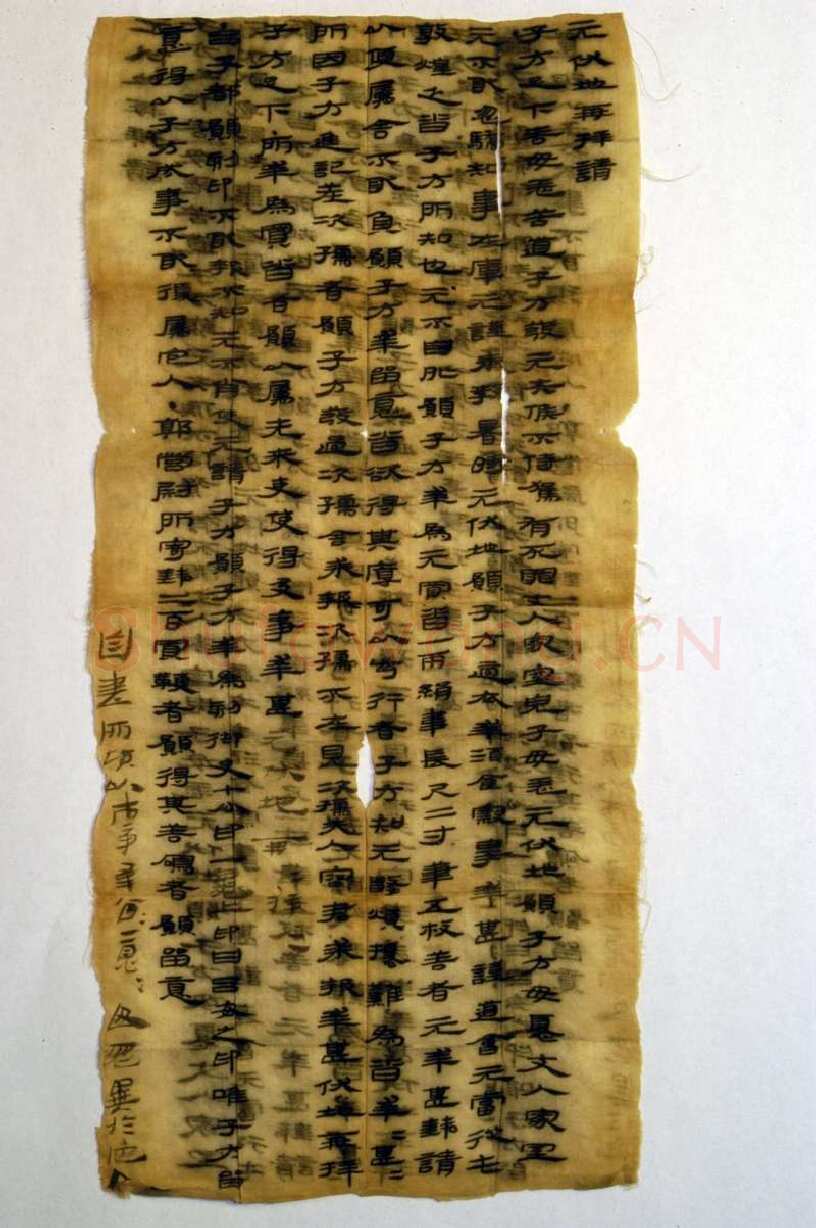 元伏地再拜請
子方足下善毋恙苦道子方發元失候不侍駕有死罪丈人家室兒子毋恙元伏地願子方毋憂丈人家室
元不敢忽驕知事在庫元謹奉教暑時元伏地願子方適衣幸酒食察事幸甚謹道會元當從屯
敦煌乏沓子方所知也元不自外願子方幸為元買沓一兩絹韋長尺二寸筆五枚善者元幸甚錢請
以便屬舍不敢負願子方幸留意沓欲得其厚可以步行者子方知元數煩擾難為沓幸=甚=
所因子方進記差次孺者願子方發過次孺舍求報次孺不在見次孺夫人容君求報幸甚伏地再拜
子方足下所幸為買沓者願以屬先來吏使得及事幸甚元伏地再拜=
呂子都願刻印不敢報不知元不肖使元請子方願子方幸為刻御史七分印一龜上印曰呂安之印唯子方留
意得以子方成事不敢復屬它人·郭營尉所寄錢二百買鞭者願得其善鳴者願留意
自書所願以市事幸留=意=毋忽異於它人
ShufaWang.CN